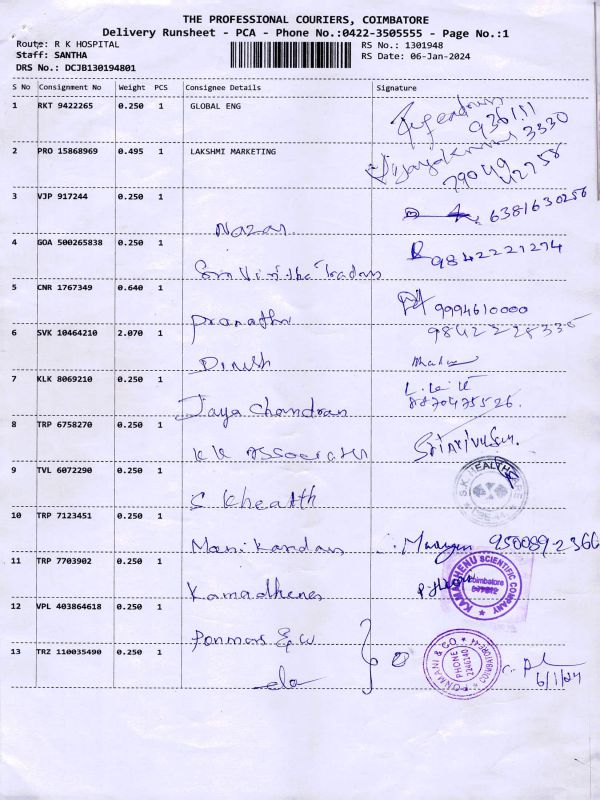 THE PROFESSIONAL COURIERS, COIMBATORE
Delivery Runsheet - PCA - Phone No.:0422-3505555 - Page No.:1
Route: R K HOSPITAL RS No.: 1301948
Staff: SANTHA RS Date: 06-Jan-2024
DRS No.: DCJB130194801
S No Consignment No Weight PCS Consignee Details Signature
1 RKT 9422265 0.250 1 GLOBAL ENG
936111
3330
2 PRO 15868969 0.495 1 LAKSHMI MARKETING Vijayakumar
79049
42758
3 VJP 917244 0.250 1 Nazar 6381630256
4 GOA 500265838 0.250 1 Traders 9842221274
5 CNR 1767349 0.640 1 Pranathi 9994610000
6 SVK 10464210 2.070 1 Dinesh
7 KLK 8069210 0.250 1 Jaya Chandran
8870475526.
8 TRP 6758270 0.250 1 KK Associates
9 TVL 6072290 0.250 1 S Khealth S.K. HEALTHCARE
10 TRP 7123451 0.250 1 Manikandan
11 TRP 7703902 0.250 1 Kamadhenu KAMADHENU SCIENTIFIC COMPANY
Coimbatore
12 VPL 403864618 0.250 1 Ponmani & co
13 TRZ 110035490 0.250 1 do PONMANI & CO
PHONE
2246240
COIMBATORE
6/1/24